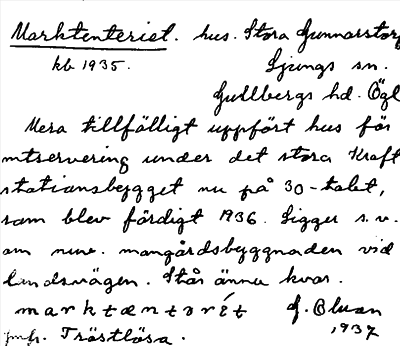 Marktenteriet. hus. Stora Gunnarstorp
kb 1935. Ljungs sn.
Gullbergs hd. Ögl
Mera tillfälligt uppfört hus för
mtservering under det stora Kraft
stationsbygget nu på 30-talet,
som blev färdigt 1936. Ligger s.v.
om nuv. mangårdsbyggnaden vid
landsvägen. Står ännu kvar.
marktæntərít
1937
jmfr. Tröstlösa.